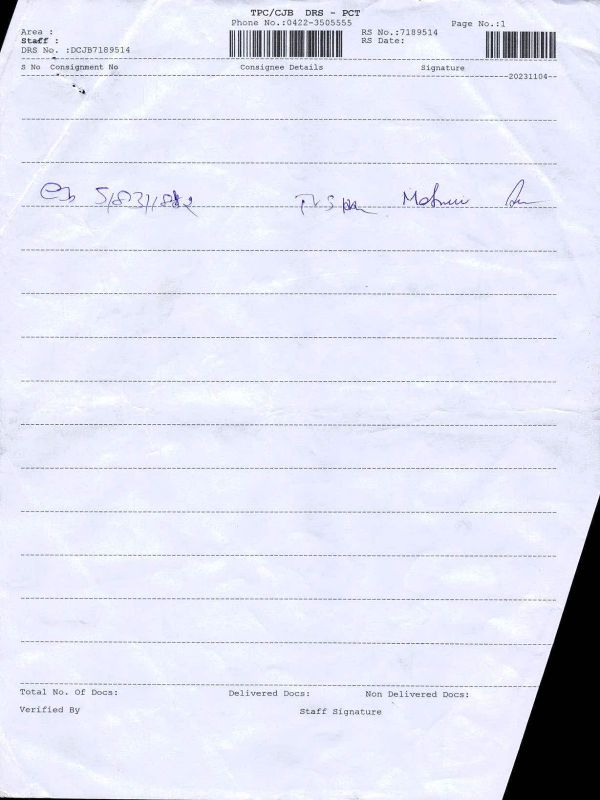 TPC/CJB DRS - PCT
Phone No.:0422-3505555
Page No.:1
Area :
Staff :
DRS No. :DCJB7189514
RS No.:7189514
RS Date:
S No Consignment No Consignee Details Signature
20231104
TVS
Total No. Of Docs: Delivered Docs: Non Delivered Docs:
Verified By Staff Signature